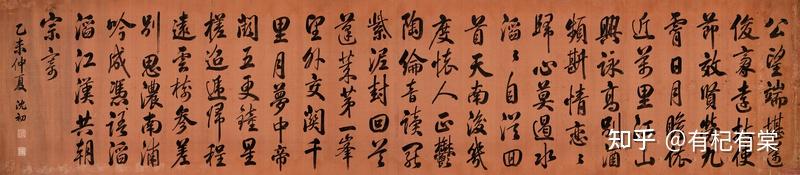 公望端堪
俊豪
節效賢勞九
霄日月瞻依
近萬里江山
興詠高別酒
頻斟情戀〻
歸心莫遏水
滔〻自從回
首天南後幾
度懷人正鬱
陶綸音讀罷
紫泥封回首
蓬萊第一峯
望外交關千
里月夢中帝
闕五更鐘星
槎迢遞歸程
遠雲樹參差
別思濃南浦
吟成憑語滔
滔江漢共朝
宗 寄
乙未仲夏 沈初
知乎 @有杞有棠